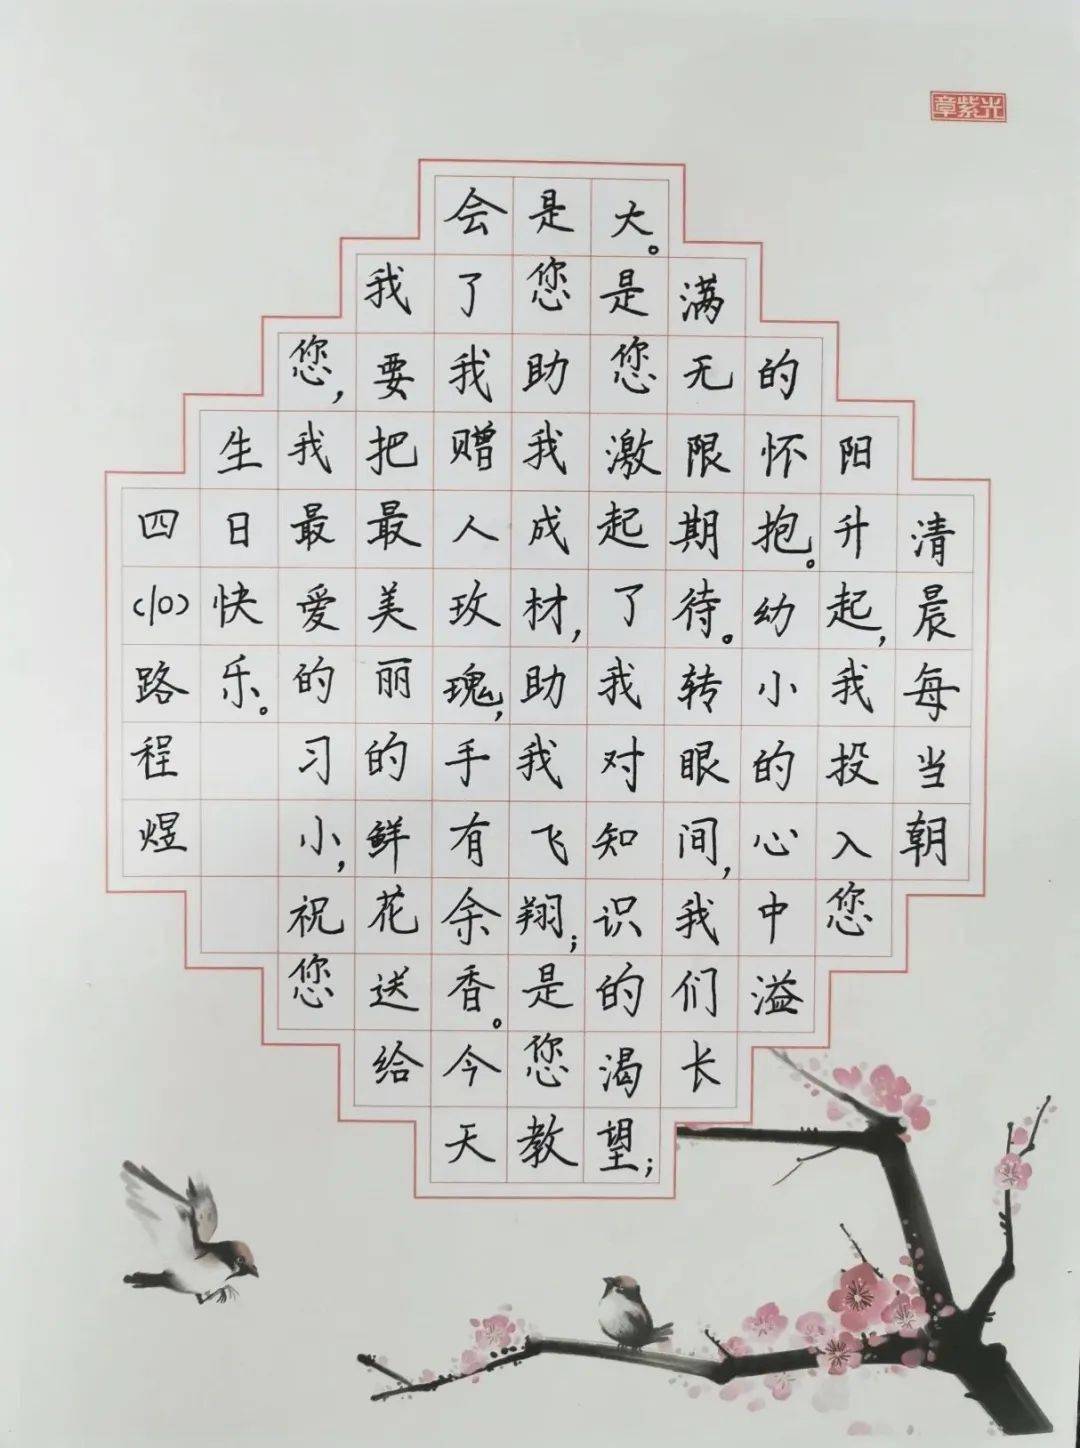 章紫光
清晨每当朝
阳升起,我投入您
的怀抱。幼小的心中溢
满无限期待。转眼间,我们长
大。是您激起了我对知识的渴望;
是您助我成材,助我飞翔;是您教
会了我赠人玫瑰,手有余香。今天
我要把最美丽的鲜花送给
您,我最爱的习小,祝您
生日快乐。
四(10)路程煜